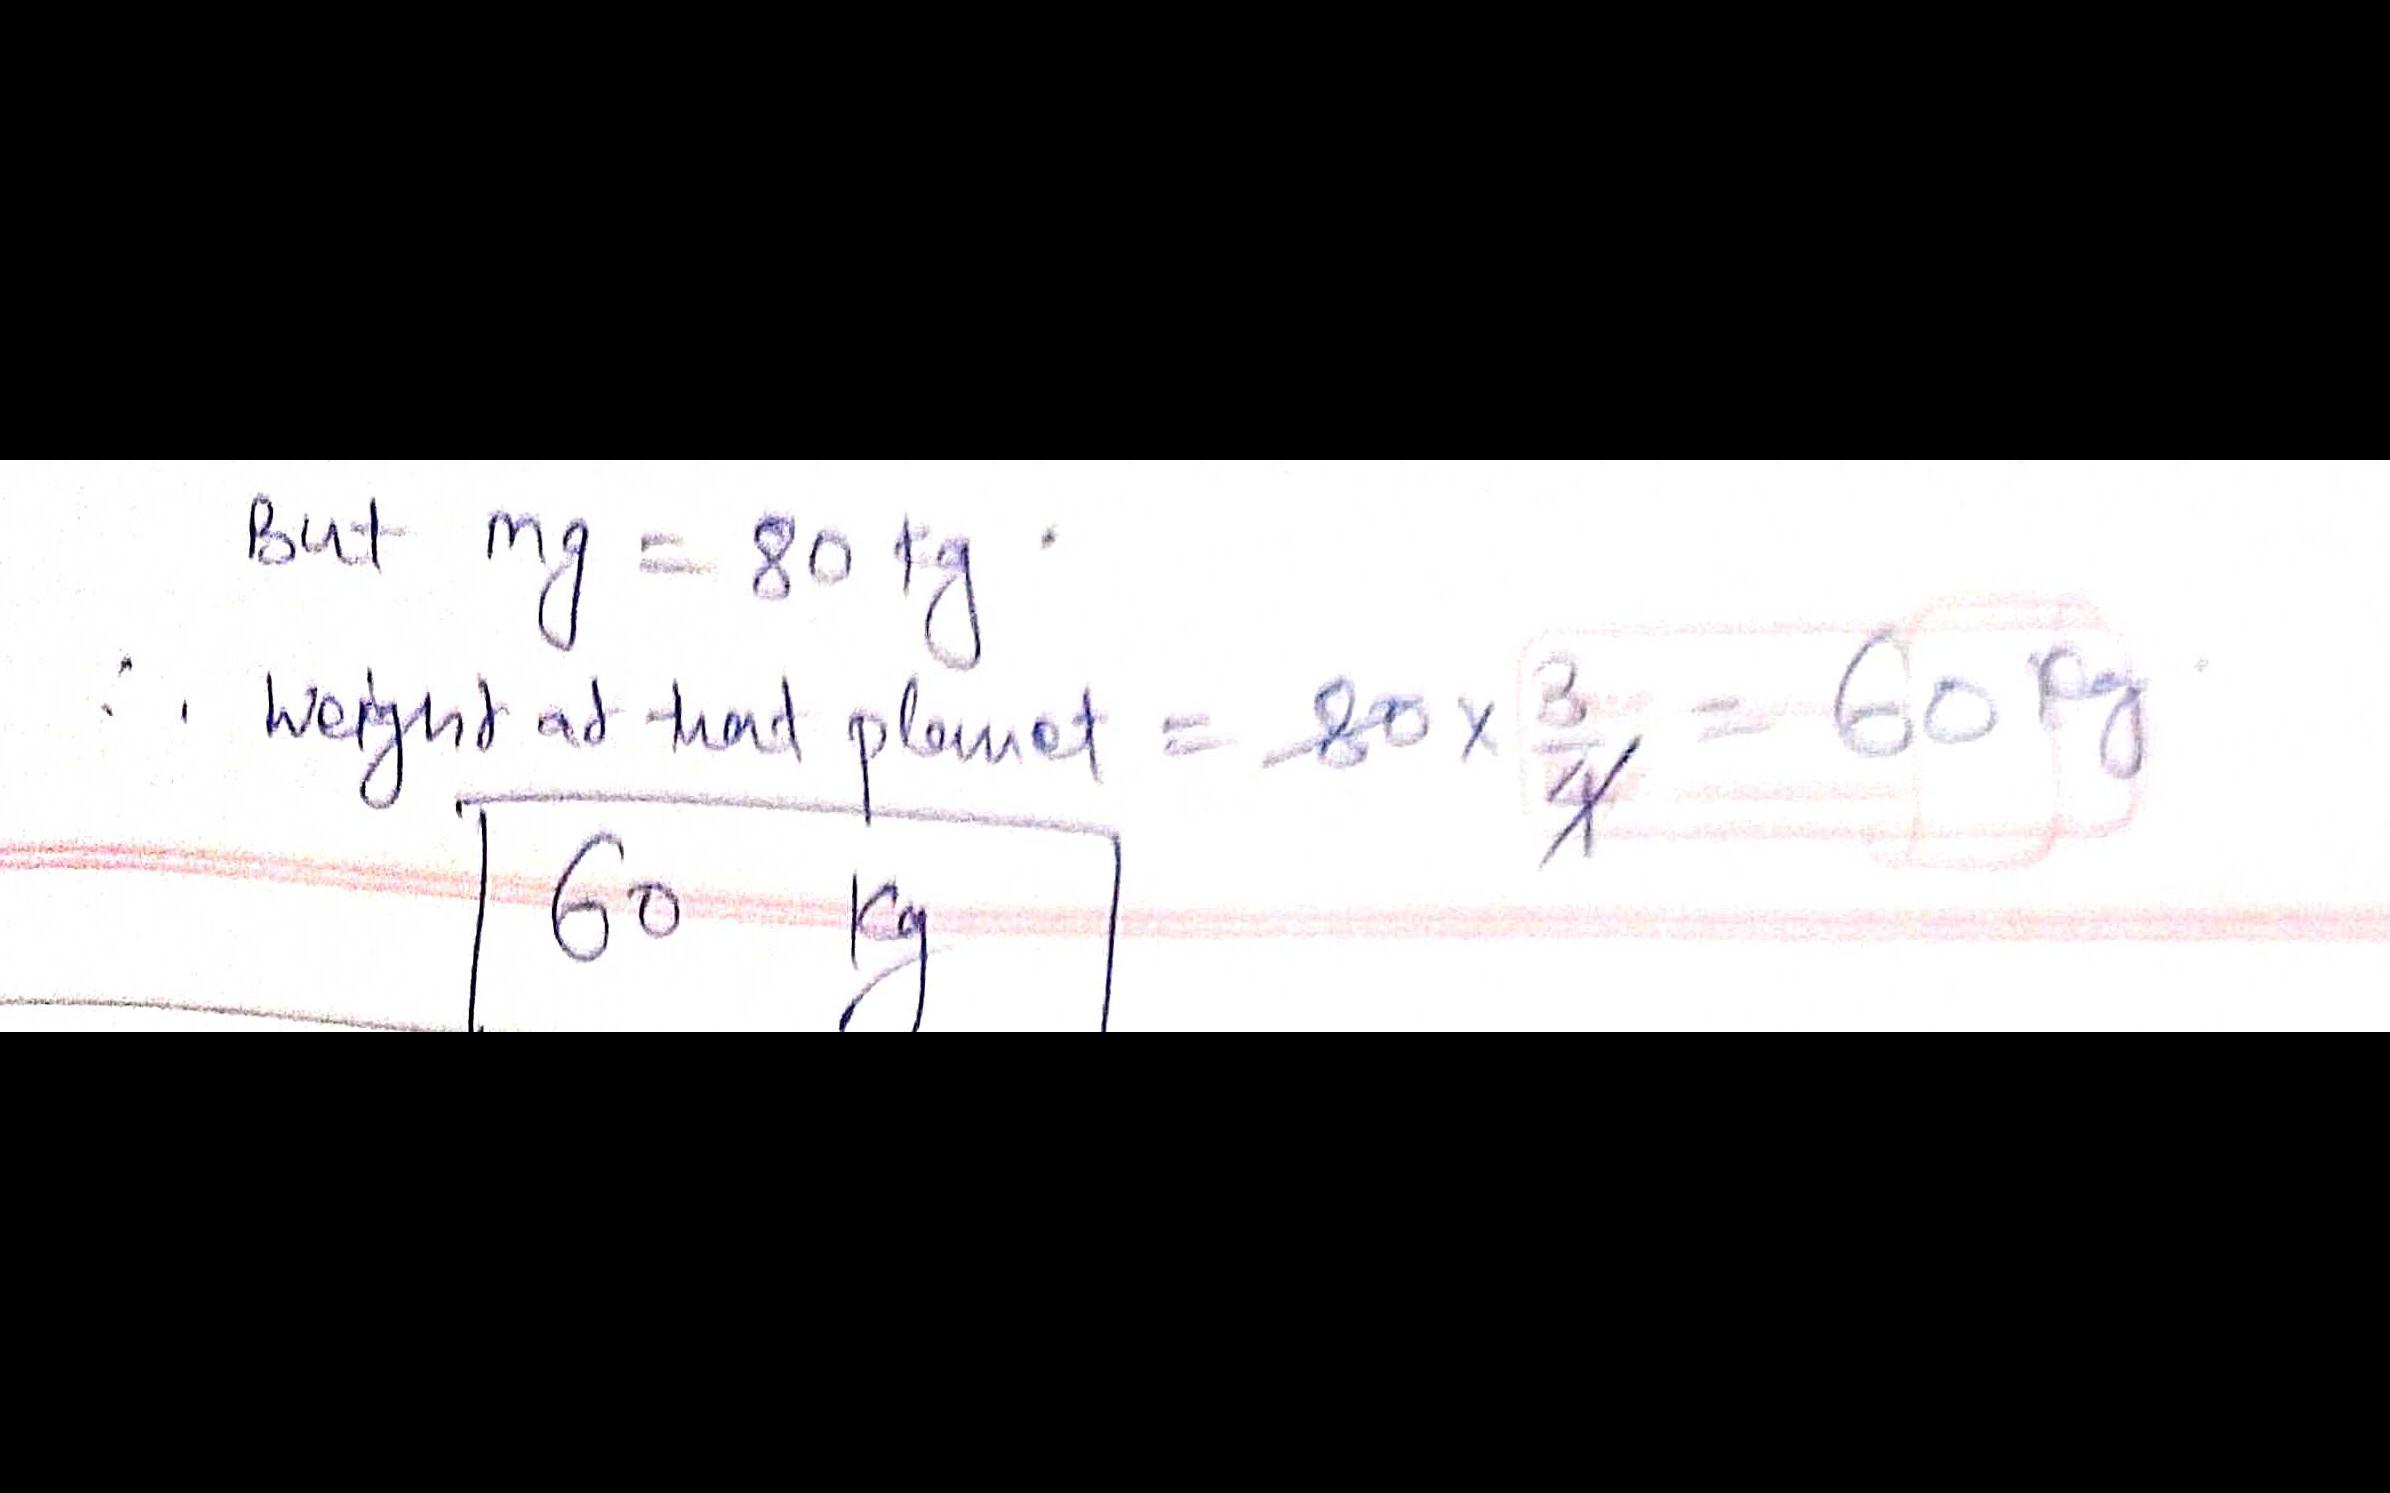 But mg = 80 kg.
∴ Weight at that planet = 80 × 3/4 = 60 kg.
60 kg